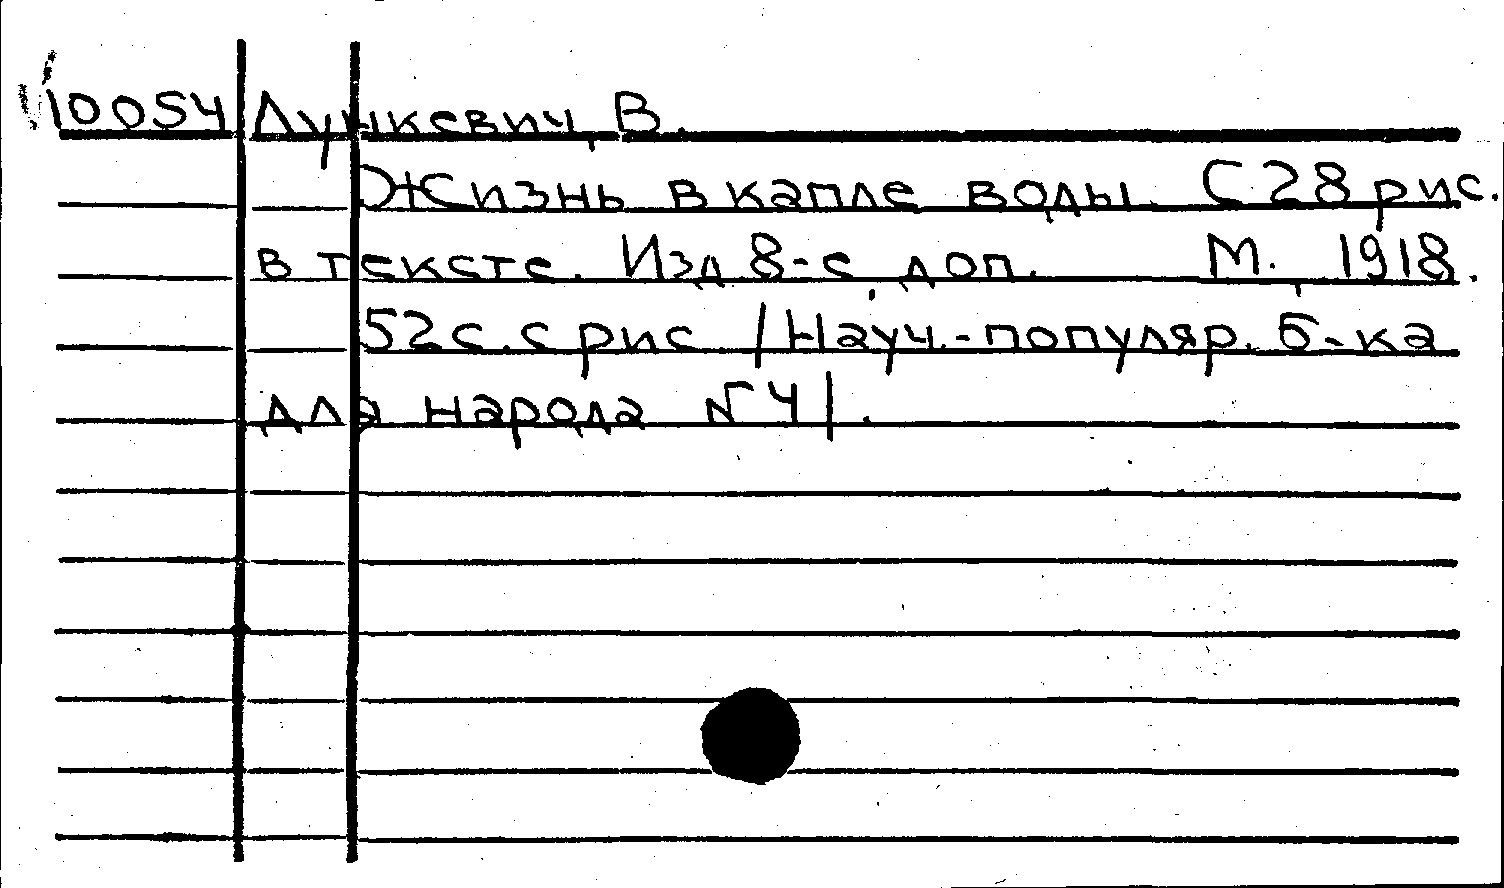 10054 Лункевич, В.
Жизнь в капле воды. С 28 рис.
в тексте. Изд 8-е, доп. М. 1918.
52 с. с рис. /Науч.-популяр. б-ка
для народа № 4/.